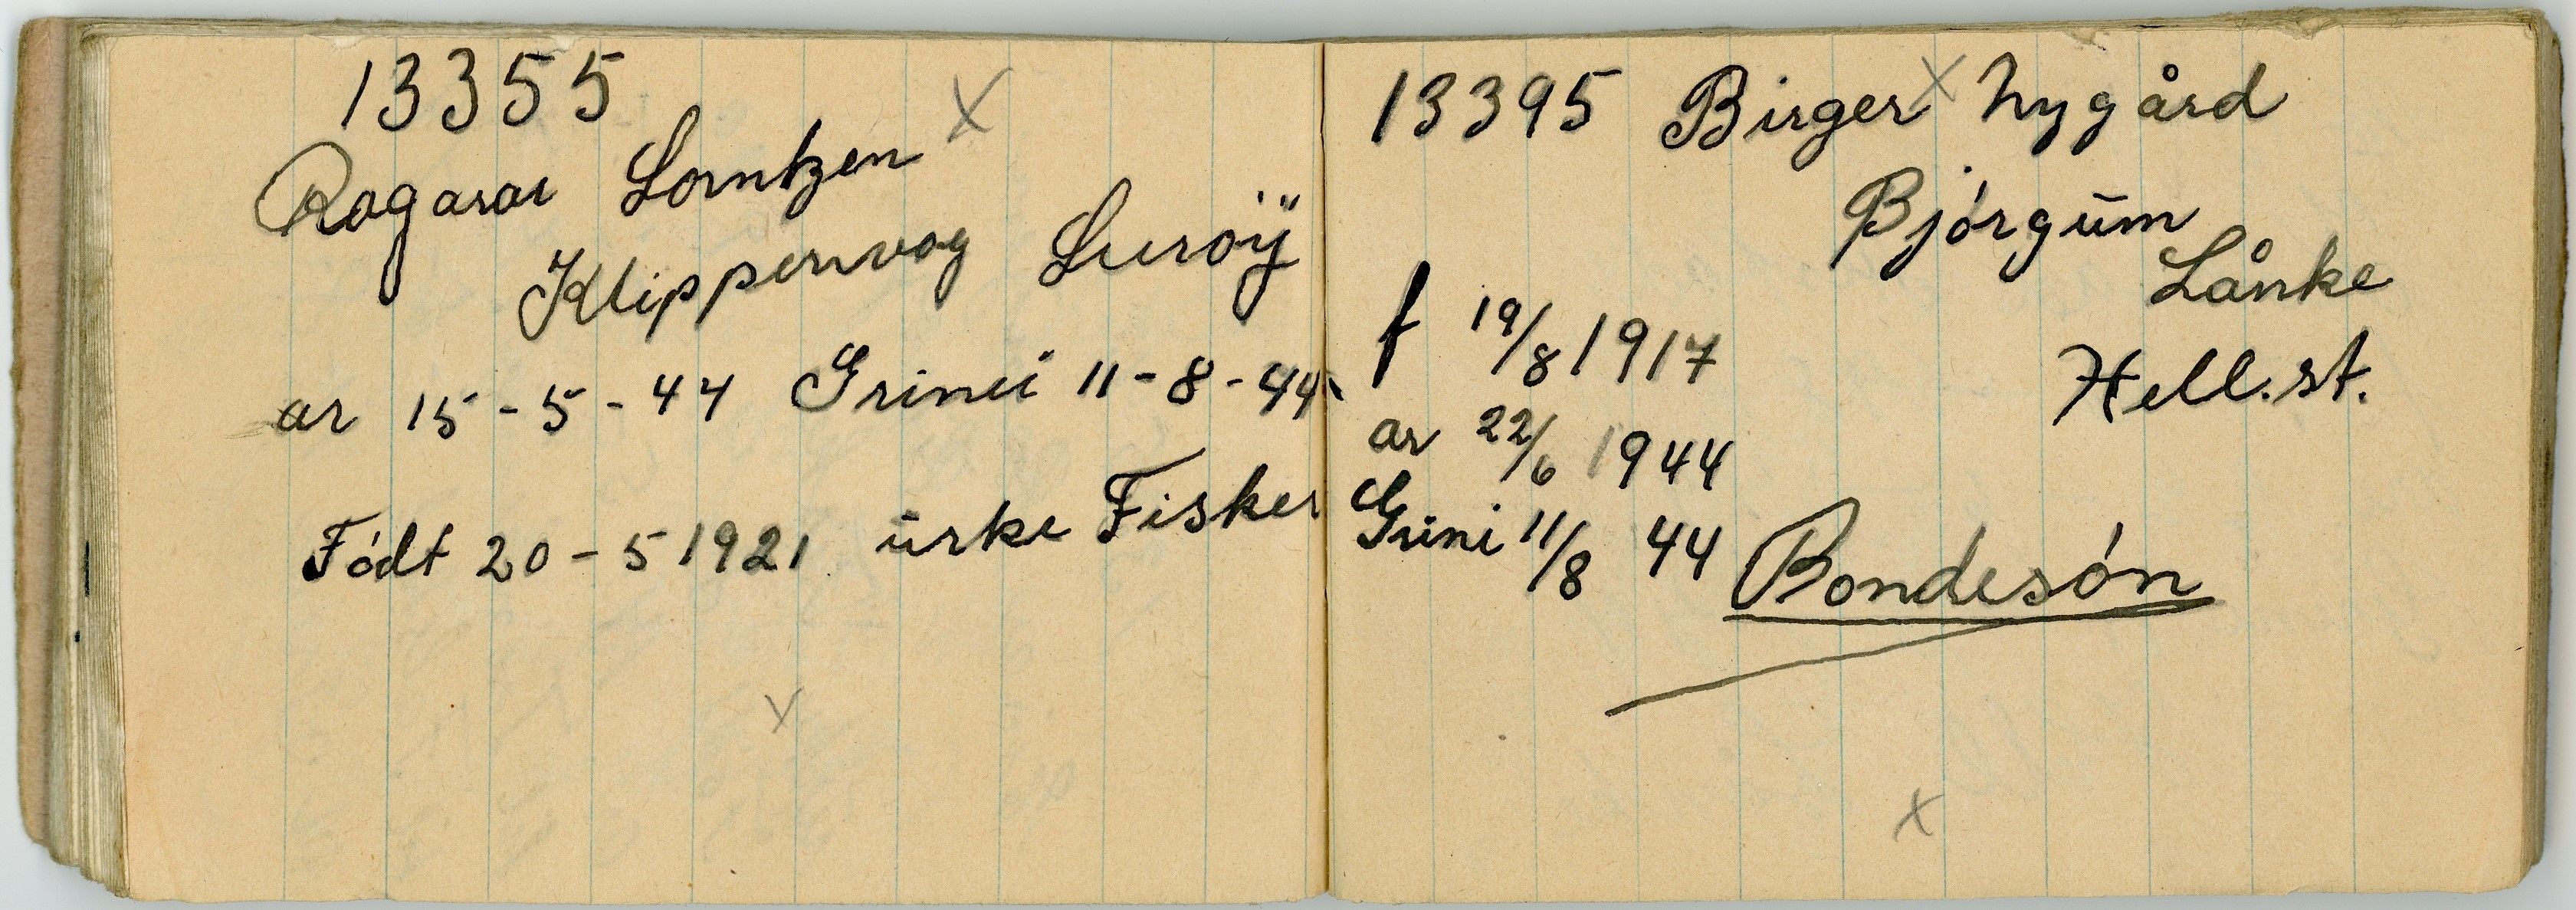 13355
Ragnar Lorntzen X
Klippenvag Luröÿ
ar 15-5-44 Grini 11-8-44
Fódt 20-5 1921. ürke Fisker
X
13395 Birger X Nygård
Bjórgüm
Lånke
Hell.st.
f 19/8 1917
ar 22/6 1944
Grini 11/8 44 Bondesón
X